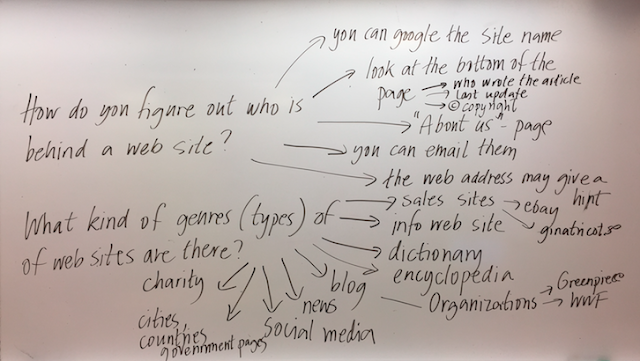 How do you figure out who is
behind a web site?
you can google the site name
look at the bottom of the
page
who wrote the article
last update
© copyright
"About us" - page
you can email them
the web address may give a
hint
What kind of genres (types) of
of web sites are there?
sales sites
ebay
ginatricot.se
info web site
dictionary
encyclopedia
Organizations
Greenpiece
WWF
blog
news
social media
cities,
countries
government pages
charity